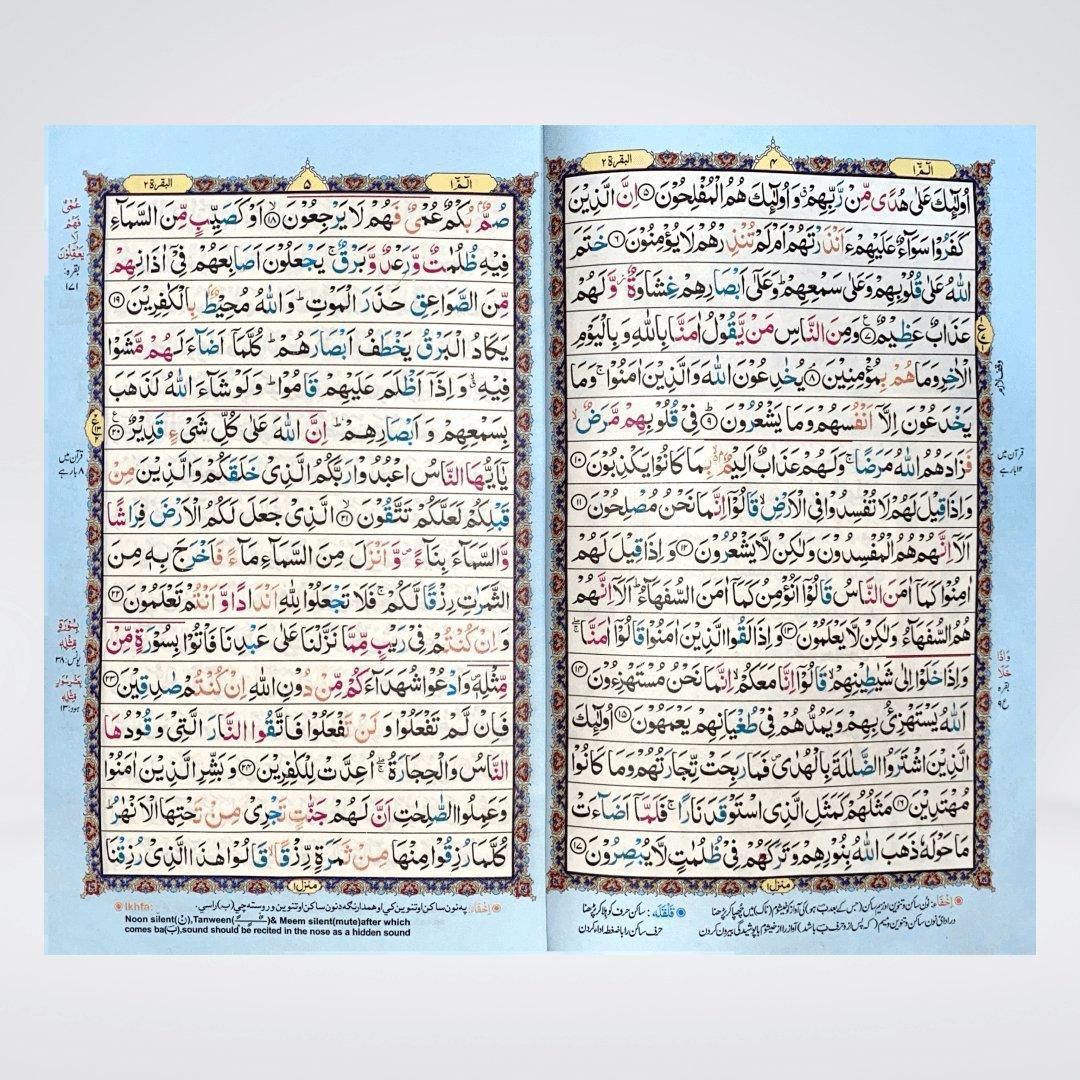 الٓمّٓ ١
٤
البقرة ٢
اُولٰٓئِكَ عَلٰى هُدًى مِّنْ رَّبِّهِمْ ۗ وَاُولٰٓئِكَ هُمُ الْمُفْلِحُوْنَ ۝٥ اِنَّ الَّذِيْنَ
كَفَرُوْا سَوَآءٌ عَلَيْهِمْ ءَاَنْذَرْتَهُمْ اَمْ لَمْ تُنْذِرْهُمْ لَا يُؤْمِنُوْنَ ۝٦ خَتَمَ
اللّٰهُ عَلٰى قُلُوْبِهِمْ وَعَلٰى سَمْعِهِمْ ؕ وَعَلٰٓى اَبْصَارِهِمْ غِشَاوَةٌ ز وَّلَهُمْ
عَذَابٌ عَظِيْمٌ ۝٧ وَمِنَ النَّاسِ مَنْ يَّقُوْلُ اٰمَنَّا بِاللّٰهِ وَبِالْيَوْمِ
الْاٰخِرِ وَمَا هُمْ بِمُؤْمِنِيْنَ ۝٨ يُخٰدِعُوْنَ اللّٰهَ وَالَّذِيْنَ اٰمَنُوْا ۚ وَمَا
يَخْدَعُوْنَ اِلَّآ اَنْفُسَهُمْ وَمَا يَشْعُرُوْنَ ۝٩ فِيْ قُلُوْبِهِمْ مَّرَضٌ ۙ
فَزَادَهُمُ اللّٰهُ مَرَضًا ۚ وَلَهُمْ عَذَابٌ اَلِيْمٌ ۢ بِمَا كَانُوْا يَكْذِبُوْنَ ۝١٠
وَاِذَا قِيْلَ لَهُمْ لَا تُفْسِدُوْا فِى الْاَرْضِ ۙ قَالُوْٓا اِنَّمَا نَحْنُ مُصْلِحُوْنَ ۝١١
اَلَآ اِنَّهُمْ هُمُ الْمُفْسِدُوْنَ وَلٰكِنْ لَّا يَشْعُرُوْنَ ۝١٢ وَاِذَا قِيْلَ لَهُمْ
اٰمِنُوْا كَمَآ اٰمَنَ النَّاسُ قَالُوْٓا اَنُؤْمِنُ كَمَآ اٰمَنَ السُّفَهَآءُ ؕ اَلَآ اِنَّهُمْ
هُمُ السُّفَهَآءُ وَلٰكِنْ لَّا يَعْلَمُوْنَ ۝١٣ وَاِذَا لَقُوا الَّذِيْنَ اٰمَنُوْا قَالُوْٓا اٰمَنَّا ۚ
وَاِذَا خَلَوْا اِلٰى شَيٰطِيْنِهِمْ ۙ قَالُوْٓا اِنَّا مَعَكُمْ ۙ اِنَّمَا نَحْنُ مُسْتَهْزِءُوْنَ ۝١٤
اَللّٰهُ يَسْتَهْزِئُ بِهِمْ وَيَمُدُّهُمْ فِيْ طُغْيَانِهِمْ يَعْمَهُوْنَ ۝١٥ اُولٰٓئِكَ
الَّذِيْنَ اشْتَرَوُا الضَّلٰلَةَ بِالْهُدٰى ۪ فَمَا رَبِحَتْ تِّجَارَتُهُمْ وَمَا كَانُوْا
مُهْتَدِيْنَ ۝١٦ مَثَلُهُمْ كَمَثَلِ الَّذِى اسْتَوْقَدَ نَارًا ۚ فَلَمَّآ اَضَآءَتْ
مَا حَوْلَهٗ ذَهَبَ اللّٰهُ بِنُوْرِهِمْ وَتَرَكَهُمْ فِيْ ظُلُمٰتٍ لَّا يُبْصِرُوْنَ ۝١٧
منزل ١
وقف لازم
قرآن میں
١٢ بار ہے
وَاِذَا
خَلَا
بقرہ
ع ٩
اخفاء: نون ساکن و تنوین اور میم ساکن (جس کے بعد ب ہو) کی آواز کو خیشوم (ناک) میں چھپا کر پڑھنا
در ادائ نون ساکن و تنوین و میم (که پس از و حرف ب باشد) آواز را از خیشوم با پوشیدگی بیرون کردن
قلقله: ساکن حرف کو ہلا کر پڑھنا
حرف ساکن را با ضغطه ادا کردن
الٓمّٓ ١
٥
البقرة ٢
صُمٌّۢ بُكْمٌ عُمْيٌ فَهُمْ لَا يَرْجِعُوْنَ ۝١٨ اَوْ كَصَيِّبٍ مِّنَ السَّمَآءِ
فِيْهِ ظُلُمٰتٌ وَّرَعْدٌ وَّبَرْقٌ ۚ يَجْعَلُوْنَ اَصَابِعَهُمْ فِيْٓ اٰذَانِهِمْ
مِّنَ الصَّوَاعِقِ حَذَرَ الْمَوْتِ ؕ وَاللّٰهُ مُحِيْطٌۢ بِالْكٰفِرِيْنَ ۝١٩
يَكَادُ الْبَرْقُ يَخْطَفُ اَبْصَارَهُمْ ؕ كُلَّمَآ اَضَآءَ لَهُمْ مَّشَوْا
فِيْهِ ۙ وَاِذَآ اَظْلَمَ عَلَيْهِمْ قَامُوْا ؕ وَلَوْ شَآءَ اللّٰهُ لَذَهَبَ
بِسَمْعِهِمْ وَاَبْصَارِهِمْ ؕ اِنَّ اللّٰهَ عَلٰى كُلِّ شَىْءٍ قَدِيْرٌ ۝٢٠
يٰٓاَيُّهَا النَّاسُ اعْبُدُوْا رَبَّكُمُ الَّذِيْ خَلَقَكُمْ وَالَّذِيْنَ مِنْ
قَبْلِكُمْ لَعَلَّكُمْ تَتَّقُوْنَ ۝٢١ الَّذِيْ جَعَلَ لَكُمُ الْاَرْضَ فِرَاشًا
وَّالسَّمَآءَ بِنَآءً ۪ وَّاَنْزَلَ مِنَ السَّمَآءِ مَآءً فَاَخْرَجَ بِهٖ مِنَ
الثَّمَرٰتِ رِزْقًا لَّكُمْ ۚ فَلَا تَجْعَلُوْا لِلّٰهِ اَنْدَادًا وَّاَنْتُمْ تَعْلَمُوْنَ ۝٢٢
وَاِنْ كُنْتُمْ فِيْ رَيْبٍ مِّمَّا نَزَّلْنَا عَلٰى عَبْدِنَا فَاْتُوْا بِسُوْرَةٍ مِّنْ
مِّثْلِهٖ ۪ وَادْعُوْا شُهَدَآءَكُمْ مِّنْ دُوْنِ اللّٰهِ اِنْ كُنْتُمْ صٰدِقِيْنَ ۝٢٣
فَاِنْ لَّمْ تَفْعَلُوْا وَلَنْ تَفْعَلُوْا فَاتَّقُوا النَّارَ الَّتِيْ وَقُوْدُهَا
النَّاسُ وَالْحِجَارَةُ ۚ اُعِدَّتْ لِلْكٰفِرِيْنَ ۝٢٤ وَبَشِّرِ الَّذِيْنَ اٰمَنُوْا
وَعَمِلُوا الصّٰلِحٰتِ اَنَّ لَهُمْ جَنّٰتٍ تَجْرِيْ مِنْ تَحْتِهَا الْاَنْهٰرُ ؕ
كُلَّمَا رُزِقُوْا مِنْهَا مِنْ ثَمَرَةٍ رِّزْقًا ۙ قَالُوْا هٰذَا الَّذِيْ رُزِقْنَا
منزل ١
عُمْىٌ
فَهُمْ
لَا
يَعْقِلُوْنَ
بقرہ:
١٧١
قرآن میں
٨ بار ہے
بِسُوْرَةٍ
مِّثْلِهٖ
یونس: ٣٨
بِعَشْرِ سُوَرٍ
مِّثْلِهٖ
ہود: ١٣
Ikhfa:
Noon silent(نْ),Tanween(ــًــٍــٌ)& Meem silent(mute)after which
comes ba(ب),sound should be recited in the nose as a hidden sound